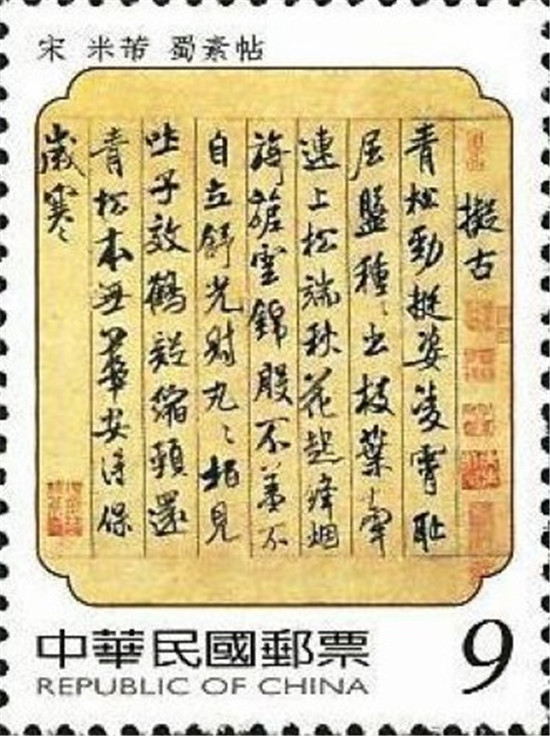 宋 米芾 蜀素帖
擬古
青松勁挺姿凌霄恥
屈盤種〻出枝葉牽
連上松端秋花起絳烟
旖旎雲錦殷不羞不
自立舒光射丸〻柏見
吐子效鶴疑縮頸還
青松本無華安得保
歲寒
中華民國郵票
REPUBLIC OF CHINA
9